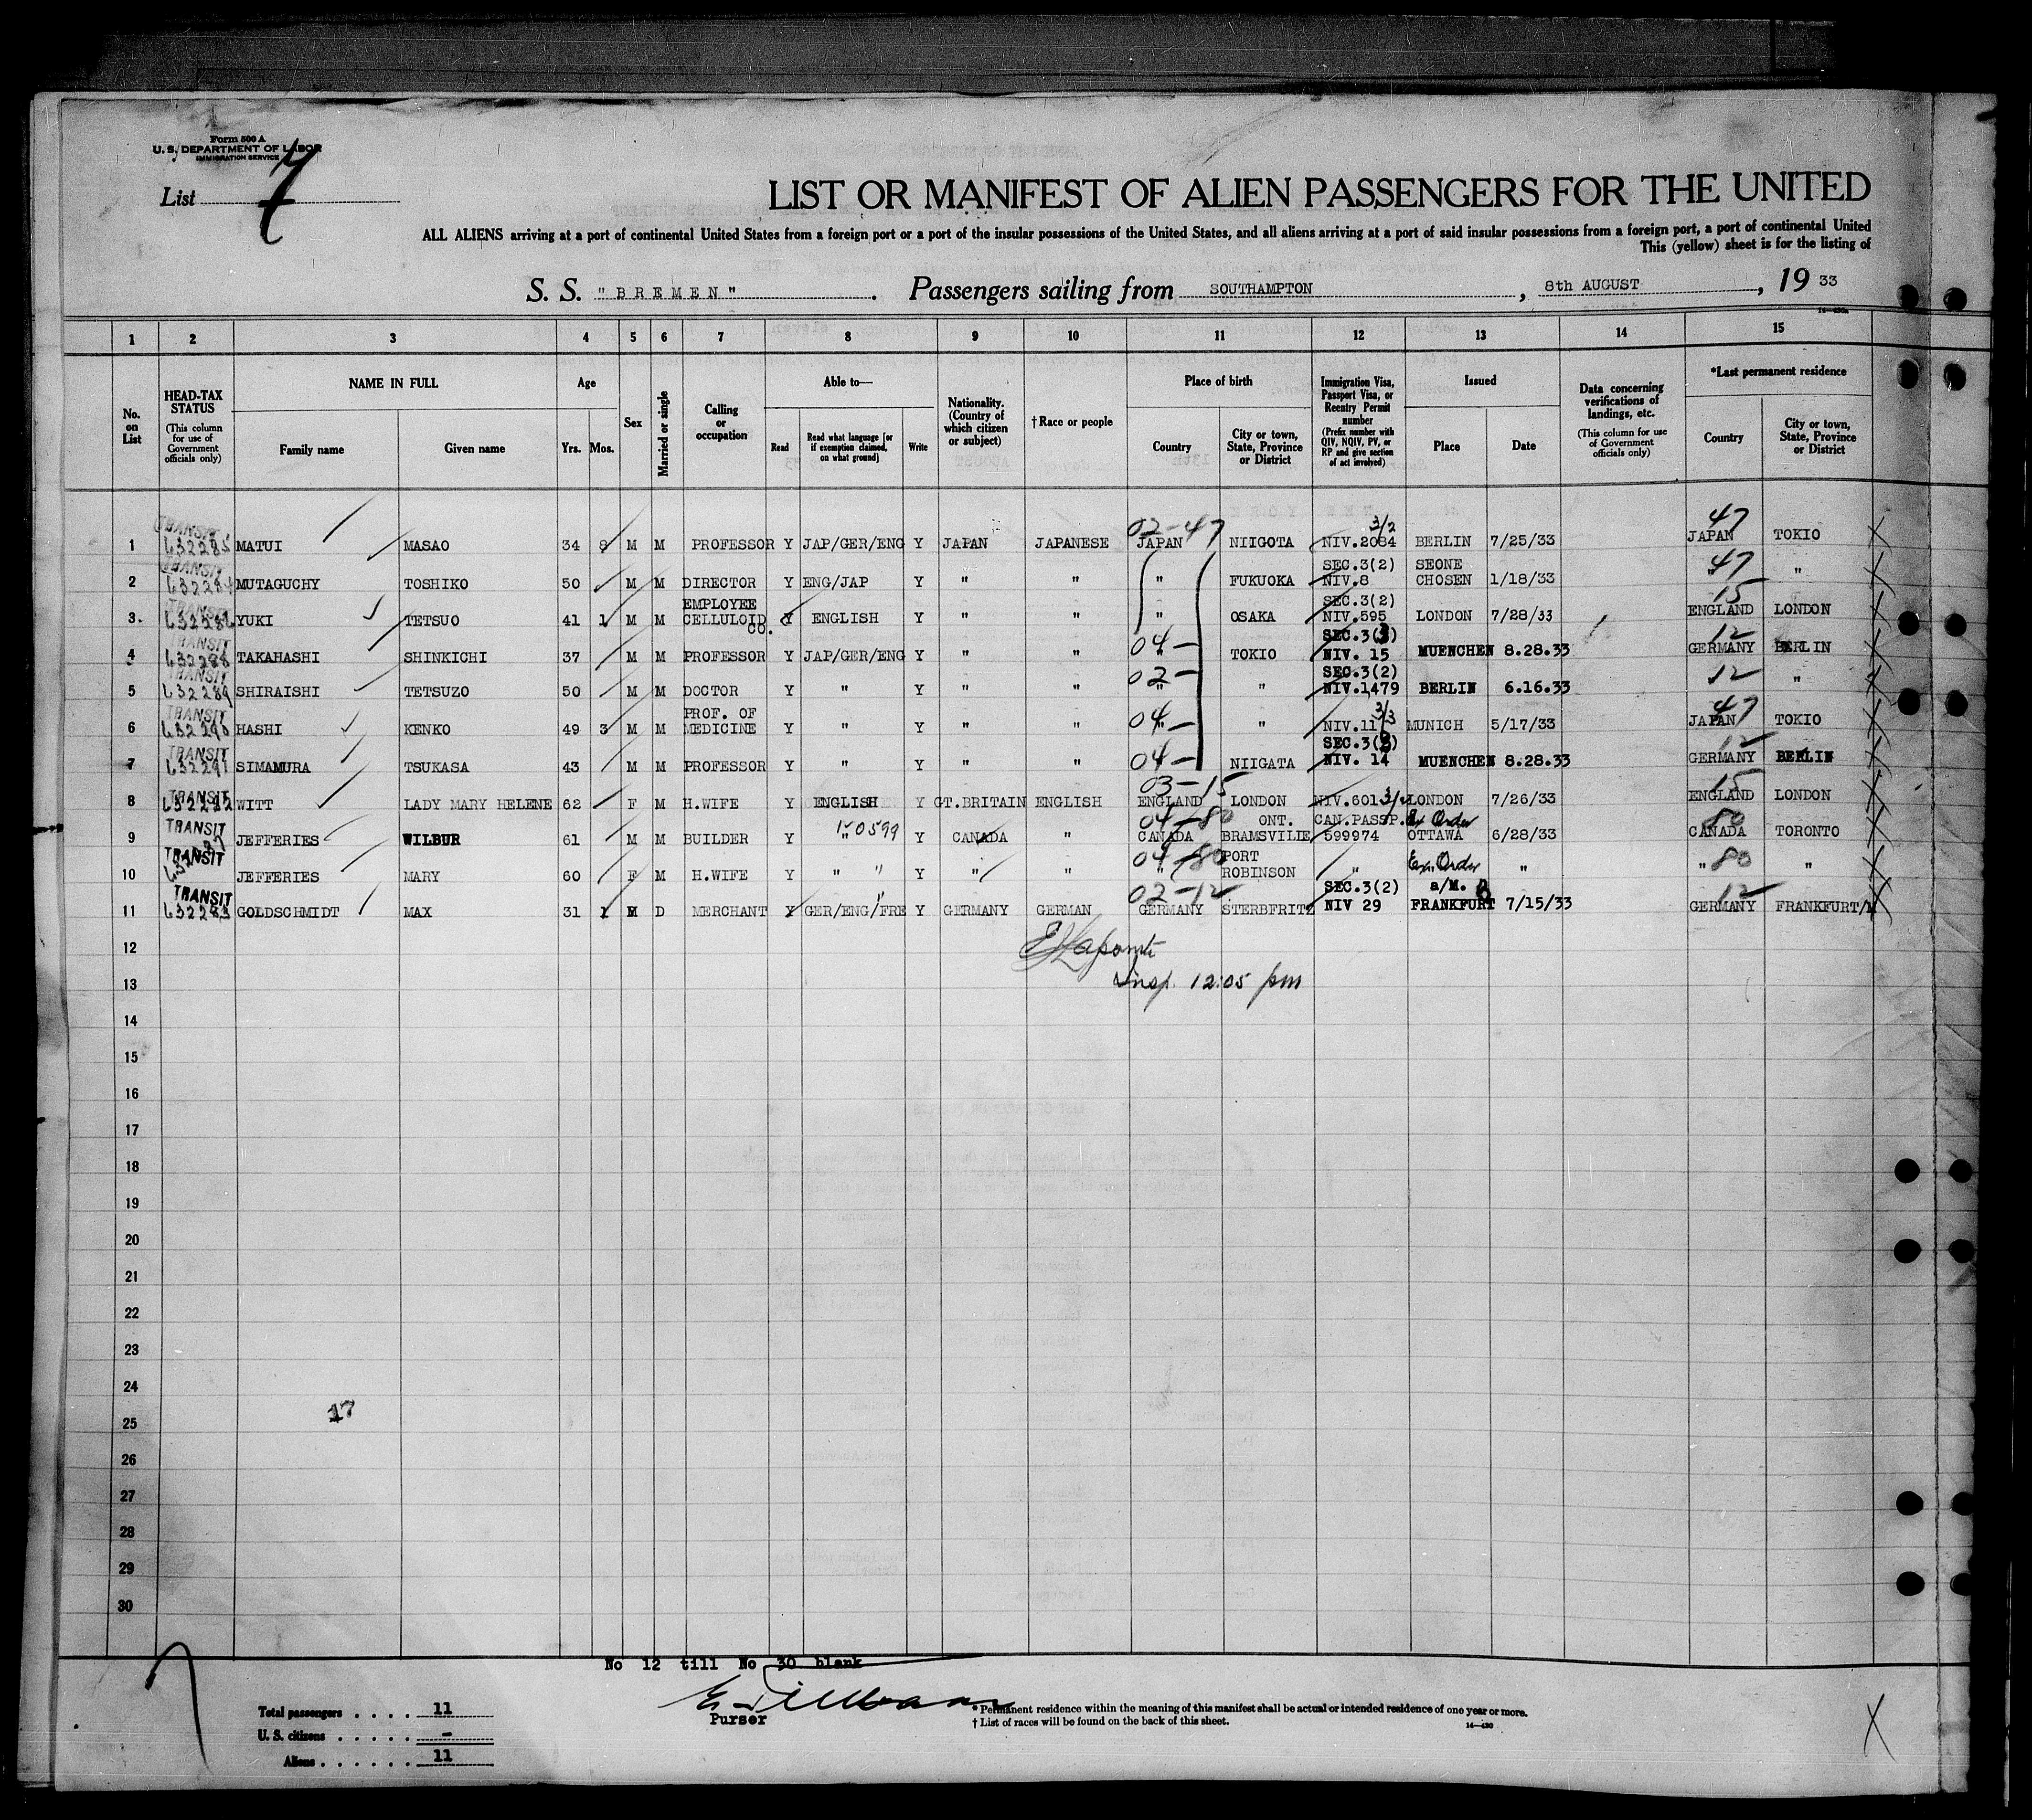 Form 500 A
U. S. DEPARTMENT OF LABOR
IMMIGRATION SERVICE
List 7
LIST OR MANIFEST OF ALIEN PASSENGERS FOR THE UNITED
ALL ALIENS arriving at a port of continental United States from a foreign port or a port of the insular possessions of the United States, and all aliens arriving at a port of said insular possessions from a foreign port, a port of continental United
This (yellow) sheet is for the listing of
S. S. "BREMEN". Passengers sailing from SOUTHAMPTON, 8th AUGUST, 19 33
1 2 3 4 5 6 7 8 9 10 11 12 13 14 15
No. on List
HEAD-TAX STATUS (This column for use of Government officials only)
NAME IN FULL Family name Given name
Age Yrs. Mos.
Sex
Married or single
Calling or occupation
Able to— Read Read what language [or if exemption claimed, on what ground] Write
Nationality. (Country of which citizen or subject)
† Race or people
Place of birth Country City or town, State, Province or District
Immigration Visa, Passport Visa, or Reentry Permit number (Prefix number with QIV, NQIV, PV, or RP and give section of act involved)
Issued Place Date
Data concerning verifications of landings, etc. (This column for use of Government officials only)
*Last permanent residence Country City or town, State, Province or District
1 TRANSIT 632285 MATUI MASAO 34 8 M M PROFESSOR Y JAP/GER/ENG Y JAPAN JAPANESE 02-47 JAPAN NIIGOTA 3/2 NIV.2084 BERLIN 7/25/33 47 JAPAN TOKIO
2 TRANSIT MUTAGUCHY TOSHIKO 50 M M DIRECTOR Y ENG/JAP Y " " " FUKUOKA SEC.3(2) NIV.8 SEONE CHOSEN 1/18/33 47 " "
3. TRANSIT YUKI TETSUO 41 1 M M EMPLOYEE CELLULOID CO. Y ENGLISH Y " " " OSAKA SEC.3(2) NIV.595 LONDON 7/28/33 15 ENGLAND LONDON
4 TRANSIT 632288 TAKAHASHI SHINKICHI 37 M M PROFESSOR Y JAP/GER/ENG Y " " 04- " TOKIO SEC.3(3) NIV. 15 MUENCHEN 8.28.33 12 GERMANY BERLIN
5 TRANSIT 632289 SHIRAISHI TETSUZO 50 M M DOCTOR Y " Y " " 02- " " SEC.3(2) NIV.1479 BERLIN 6.16.33 12 " "
6 TRANSIT 632290 HASHI KENKO 49 3 M M PROF. OF MEDICINE Y " Y " " 04- " " 3/3 NIV.11 MUNICH 5/17/33 47 JAPAN TOKIO
7 TRANSIT 632291 SIMAMURA TSUKASA 43 M M PROFESSOR Y " Y " " 04- NIIGATA SEC.3(3) NIV. 14 MUENCHEN 8.28.33 12 GERMANY BERLIN
8 TRANSIT WITT LADY MARY HELENE 62 F M H.WIFE Y ENGLISH Y GT.BRITAIN ENGLISH 03-15 ENGLAND LONDON NIV.601 3/2 LONDON 7/26/33 15 ENGLAND LONDON
9 TRANSIT JEFFERIES WILBUR 61 M M BUILDER Y " Y CANADA " 04-80 CANADA ONT. BRAMSVILIE CAN.PASSP. 599974 Ex Order OTTAWA 6/28/33 80 CANADA TORONTO
10 TRANSIT JEFFERIES MARY 60 F M H.WIFE Y " " Y " " 04-80 " PORT ROBINSON " Ex. Order " 80 " "
11 TRANSIT 632283 GOLDSCHMIDT MAX 31 1 M D MERCHANT Y GER/ENG/FRE Y GERMANY GERMAN 02-12 GERMANY STERBFRITZ SEC.3(2) NIV 29 a/M. FRANKFURT 7/15/33 12 GERMANY FRANKFURT/M
12
13 insp. 12:05 pm
14
15
16
17
18
19
20
21
22
23
24
17
25
26
27
28
29
30
No 12 till No 30 blank
Total passengers . . . . 11
U. S. citizens . . . . . –
Aliens . . . . . . 11
Purser
* Permanent residence within the meaning of this manifest shall be actual or intended residence of one year or more.
† List of races will be found on the back of this sheet.
14—430